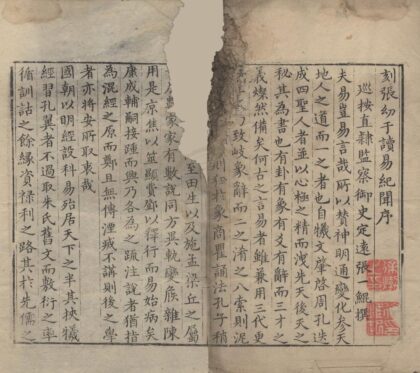 刻張幼于讀易紀聞序
巡按直隸監察御史定遠張一鯤撰
夫易豈易言哉所以贊神明通變化參天
地人之道而一之者也自犧文肇啓周孔迭
成四聖人者並以心極之精而洩先天後天之
秘其為書也有卦有象有爻有辭而三才之
義燦然備矣何古之言易者雖兼用三代更
致岐象辭而二之淆之八索則泥
則和於象商瞿誦法孔子稍
至田生以及施孟梁丘之屬
象家有數說同方異軌雜陳
用是京焦以筮顯費鄧以釋行而易始病矣
康成輔嗣接踵而興乃各為之疏注說者猶指
為混經之原而鄭且無傳湮滅不講則後之學
者亦將安所取衷哉
國朝以明經設科易殆居天下之半其挾犧
經習孔翼者不過取朱氏舊文而敷衍之率
循訓詁之餘緣資祿利之路其於先儒之